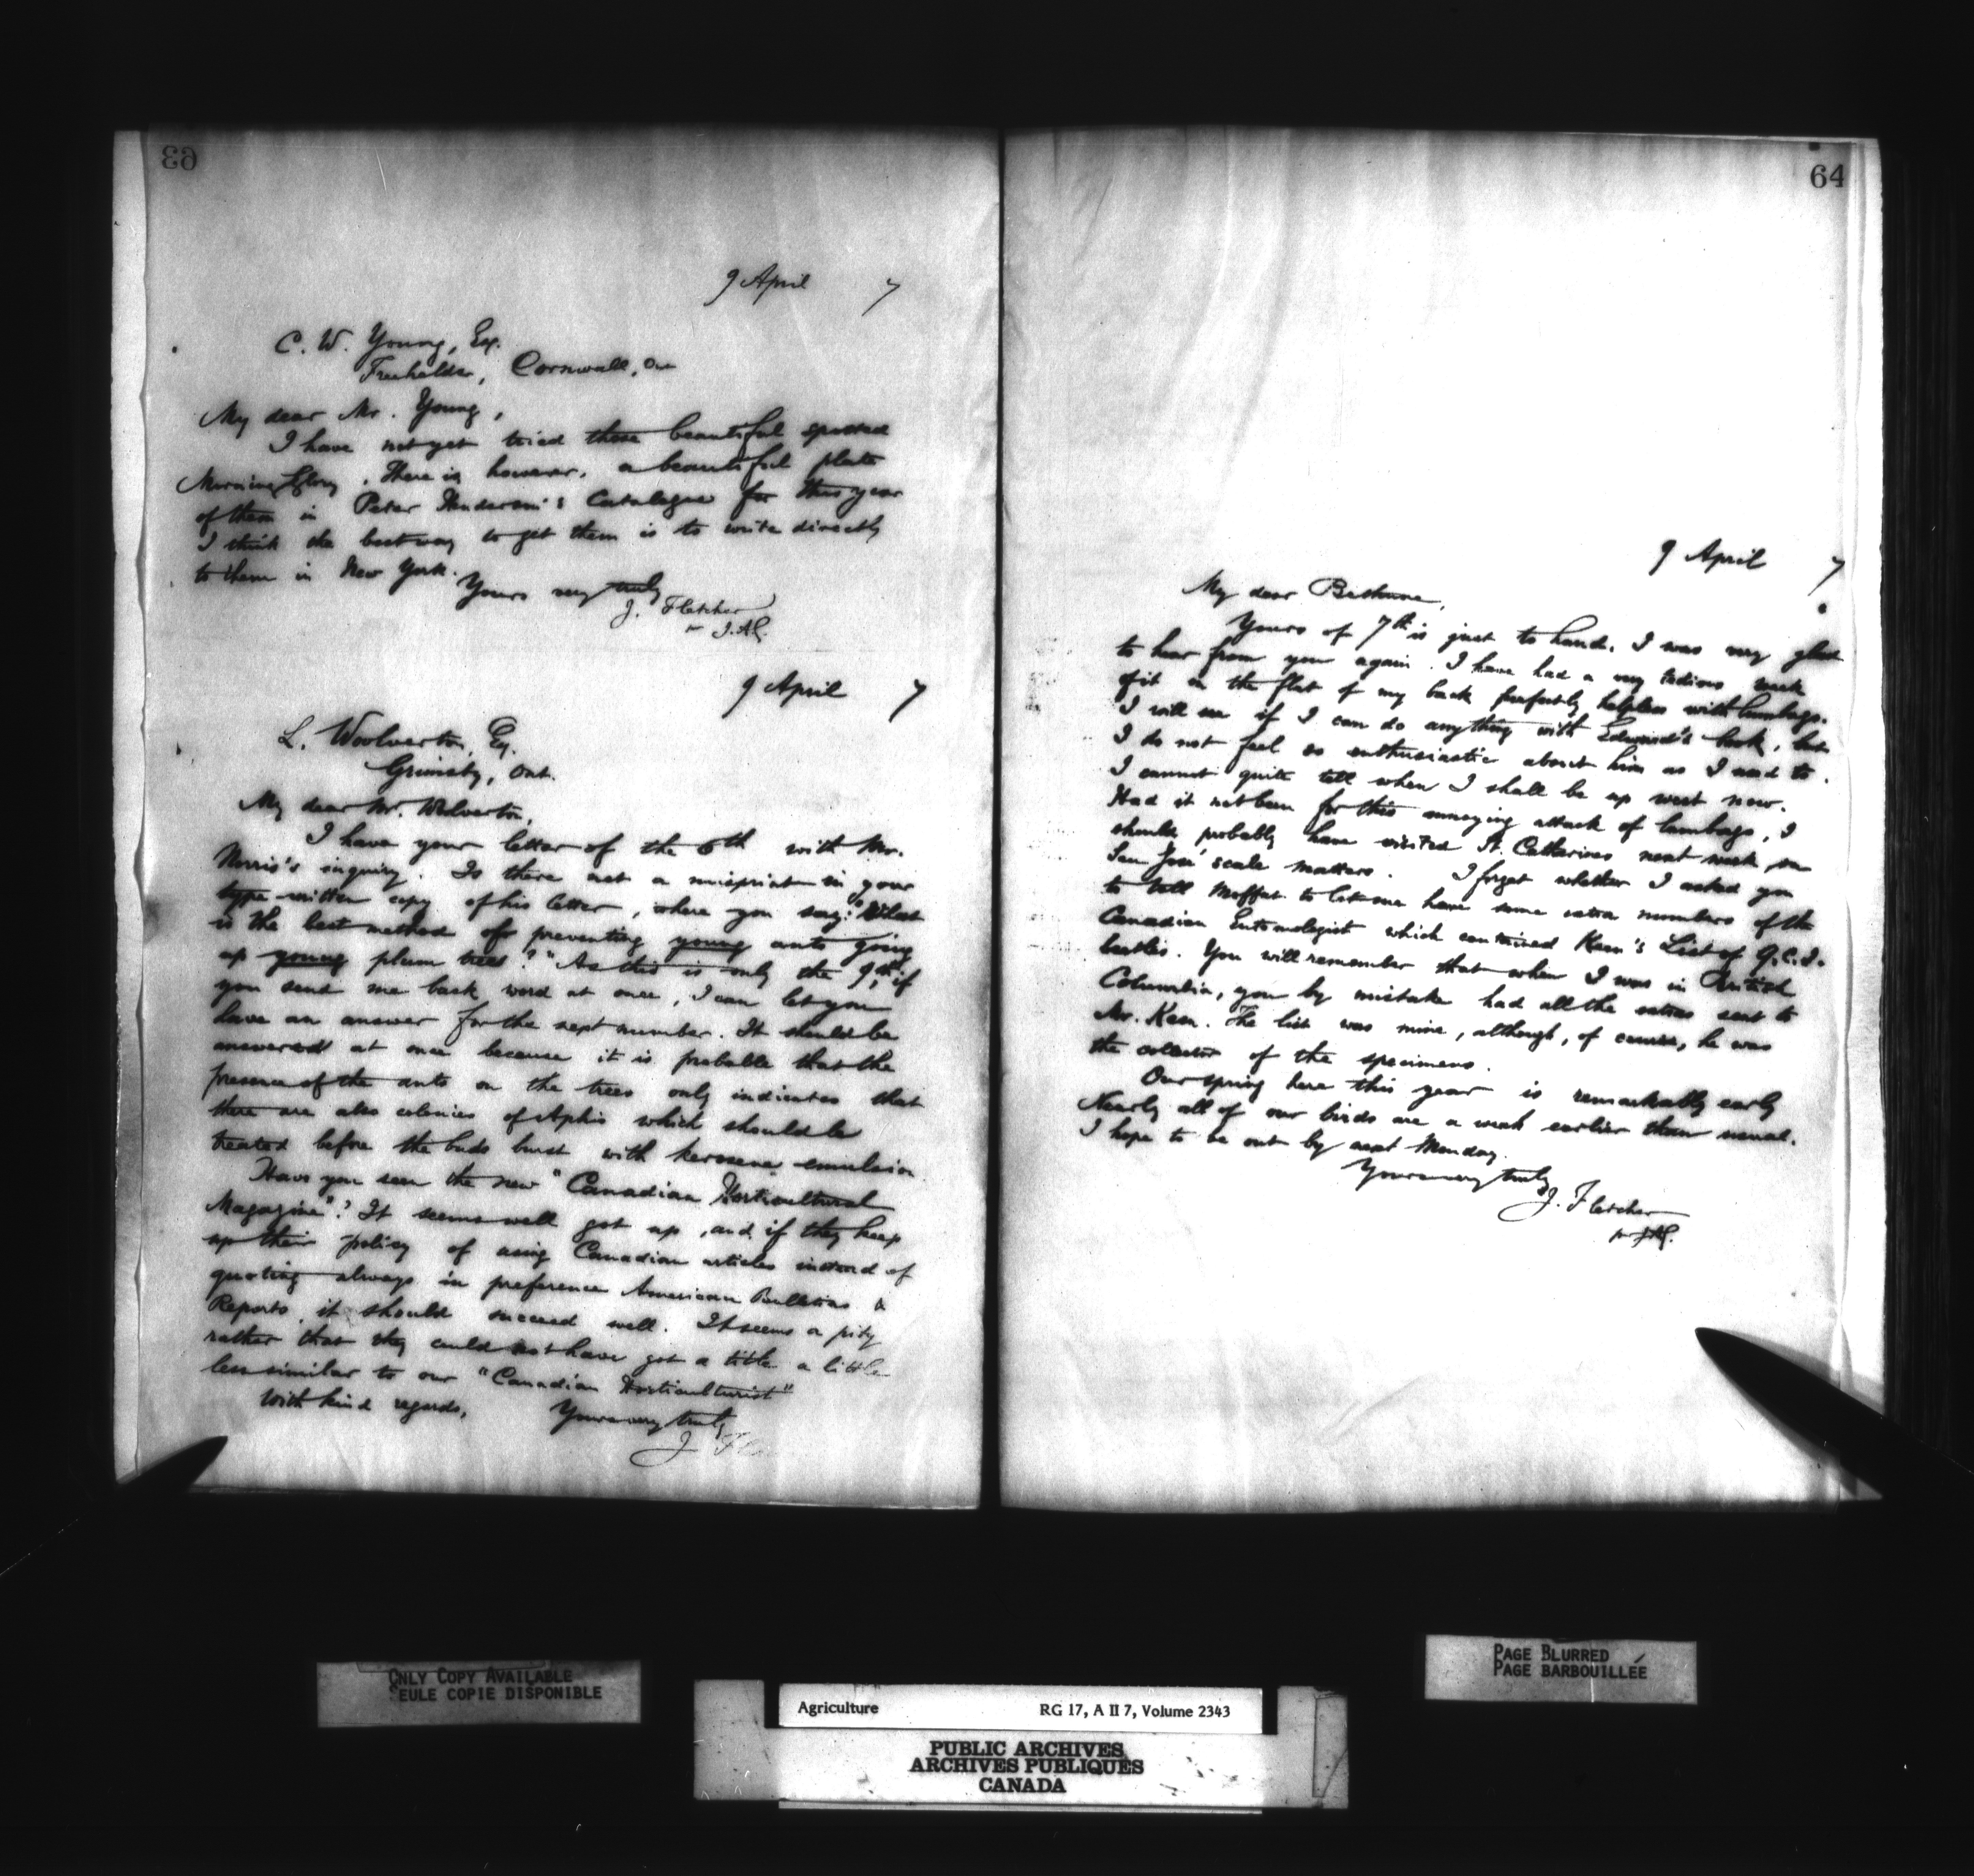 63
9 April 7
C. W. Young, Esq.
Freeholder, Cornwall, Ont
My dear Mr. Young,
I have not yet tried those beautiful spotted
Morning Glory. There is however, a beautiful plate
of them in Peter Henderson's Catalogue for this year
I think the best way to get them is to write directly
to them in New York.
Yours very truly
J. Fletcher
9 April 7
L. Woolverton, Esq.
Grimsby, Ont.
My dear Mr. Wolverton,
I have your letter of the 6th with Mr.
Morris's inquiry. Is there not a misprint in your
type-written copy of his letter, where you say: "What
is the best method of preventing young ants going
up young plum trees?" As this is only the 9th, if
you send me back word at once, I can let you
have an answer for the next number. It should be
answered at once because it is probable that the
presence of the ants on the trees only indicates that
there are also colonies of Aphis which should be
treated before the buds burst with kerosene emulsion
Have you seen the new "Canadian Horticultural
Magazine"? It seems well got up, and if they keep
up their policy of using Canadian articles instead of
quoting always in preference American Bulletins &
Reports, it should succeed well. It seems a pity
rather that they could not have got a title a little
less similar to our "Canadian Horticulturist"
With kind regards, Yours very truly
J Fl
64
9 April 7
My dear Bethune,
Yours of 7th is just to hand. I was very glad
to hear from you again. I have had a very tedious week
of it on the flat of my back perfectly helpless with lumbago.
I will see if I can do anything with Edward's book, but
I do not feel so enthusiastic about him as I used to.
I cannot quite tell when I shall be up west now.
Had it not been for this annoying attack of lumbago, I
should probably have visited St. Catharines next week on
San José scale matters. I forget whether I asked you
to tell Moffat to let me have some extra numbers of the
Canadian Entomologist which contained Keen's List of Q.C.I.
beetles. You will remember that when I was in British
Columbia, you by mistake had all the extras sent to
Mr. Keen. The list was mine, although, of course, he was
the collector of the specimens.
Our spring here this year is remarkably early
Nearly all of our birds are a week earlier than usual.
I hope to be out by next Monday.
Yours very truly
J. Fletcher
ONLY COPY AVAILABLE
SEULE COPIE DISPONIBLE
PAGE BLURRED
PAGE BARBOUILLÉE
Agriculture RG 17, A II 7, Volume 2343
PUBLIC ARCHIVES
ARCHIVES PUBLIQUES
CANADA